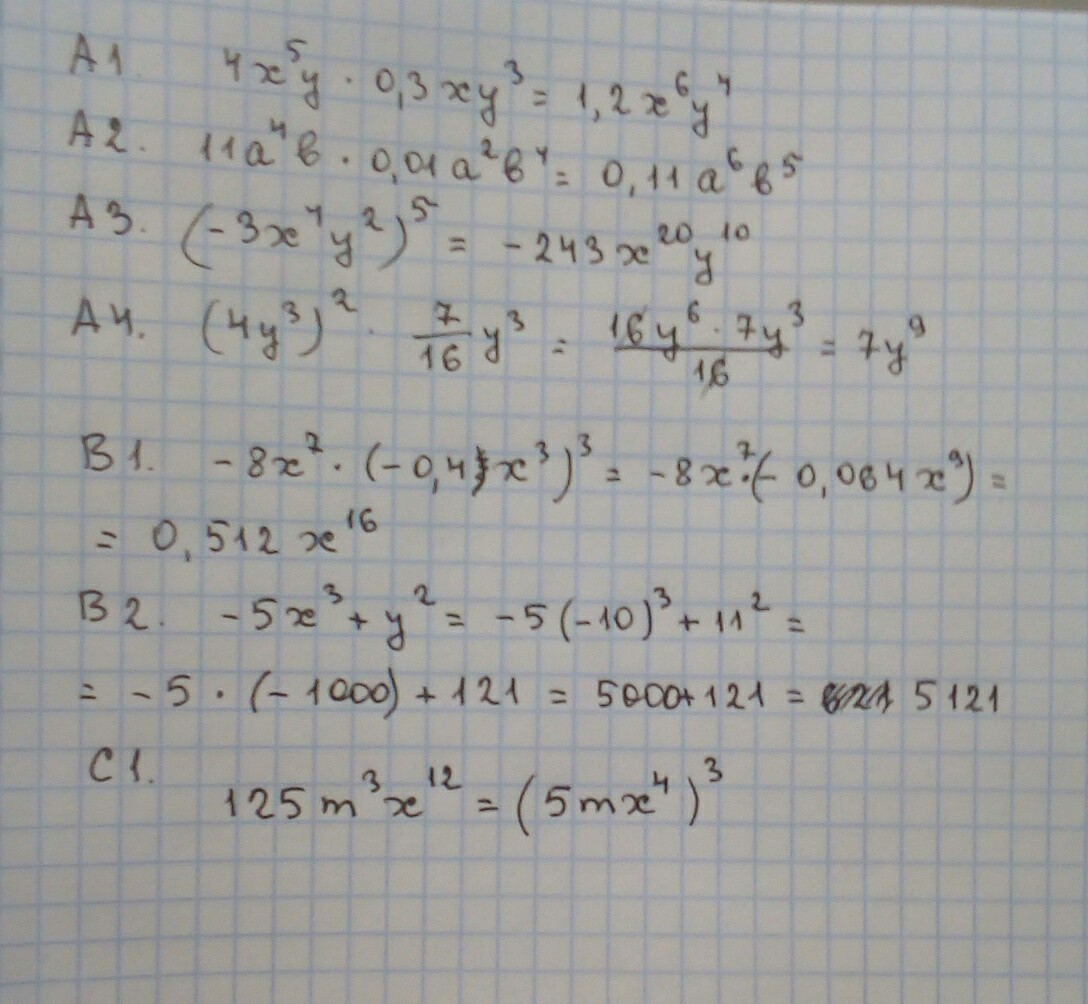 A1. 4x⁵y · 0,3xy³ = 1,2x⁶y⁴
A2. 11a⁴b · 0,01a²b⁴ = 0,11a⁶b⁵
A3. (-3x⁴y²)⁵ = -243x²⁰y¹⁰
A4. (4y³)² · 7/16 y³ = 16y⁶ · 7y³/16 = 7y⁹
B1. -8x⁷ · (-0,4x³)³ = -8x⁷·(-0,064x⁹) =
= 0,512x¹⁶
B2. -5x³ + y² = -5(-10)³ + 11² =
= -5 · (-1000) + 121 = 5000 + 121 = 5121
C1.
125m³x¹² = (5mx⁴)³